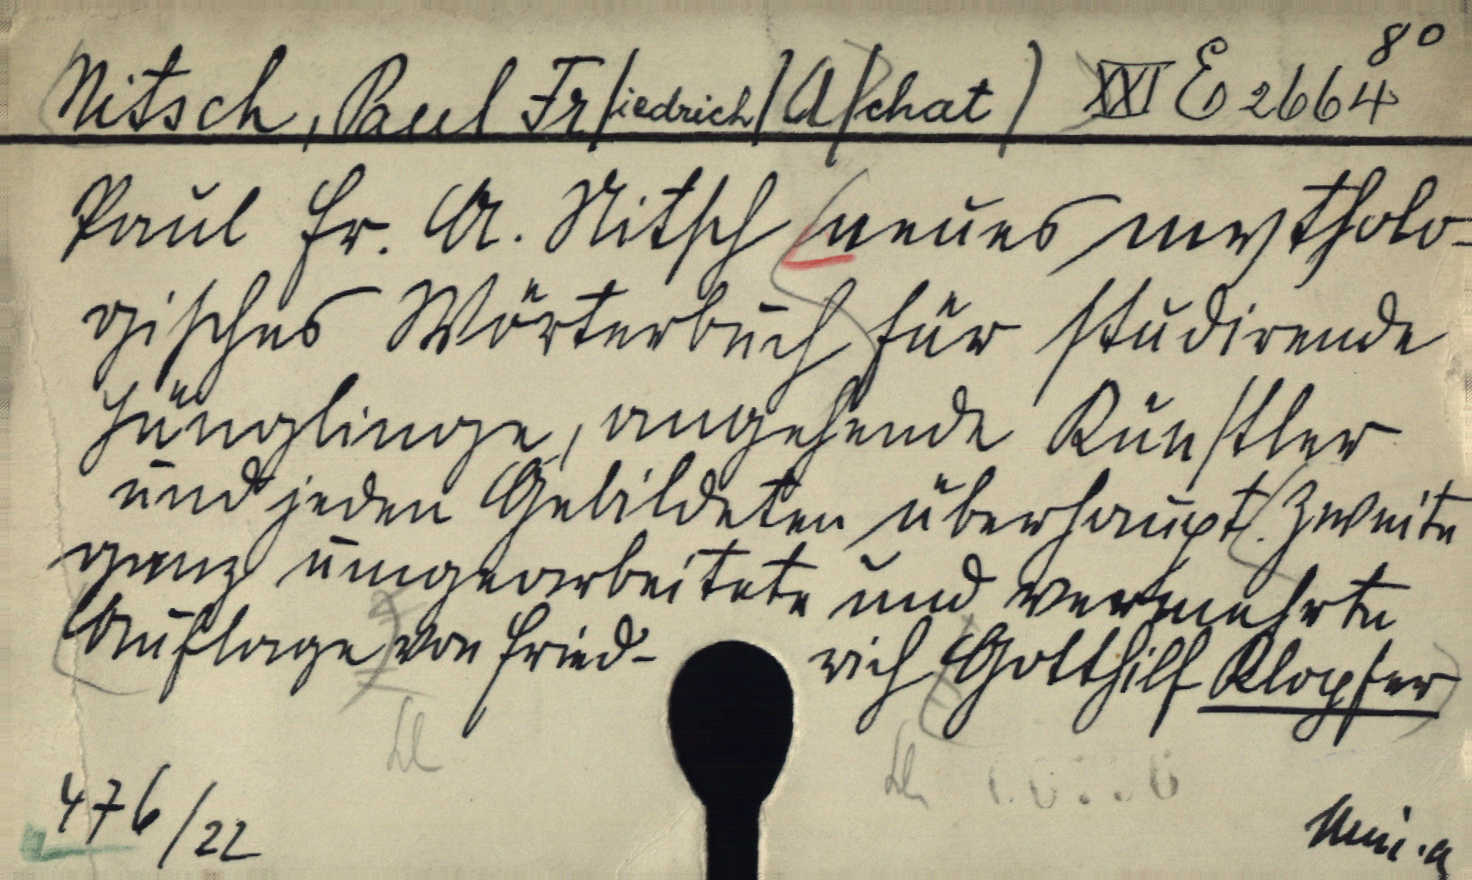 Nitsch, Paul Fr/iedrich/ A/chat/ XXI E 2664 8°
Paul Fr. A. Nitsch neues mytholo-
gisches Wörterbuch für studirende
Jünglinge, angehende Künstler
und jeden Gebildeten überhaupt. Zweite
ganz umgearbeitete und vermehrte
Auflage von Fried- rich Gotthilf Klopfer
476/22